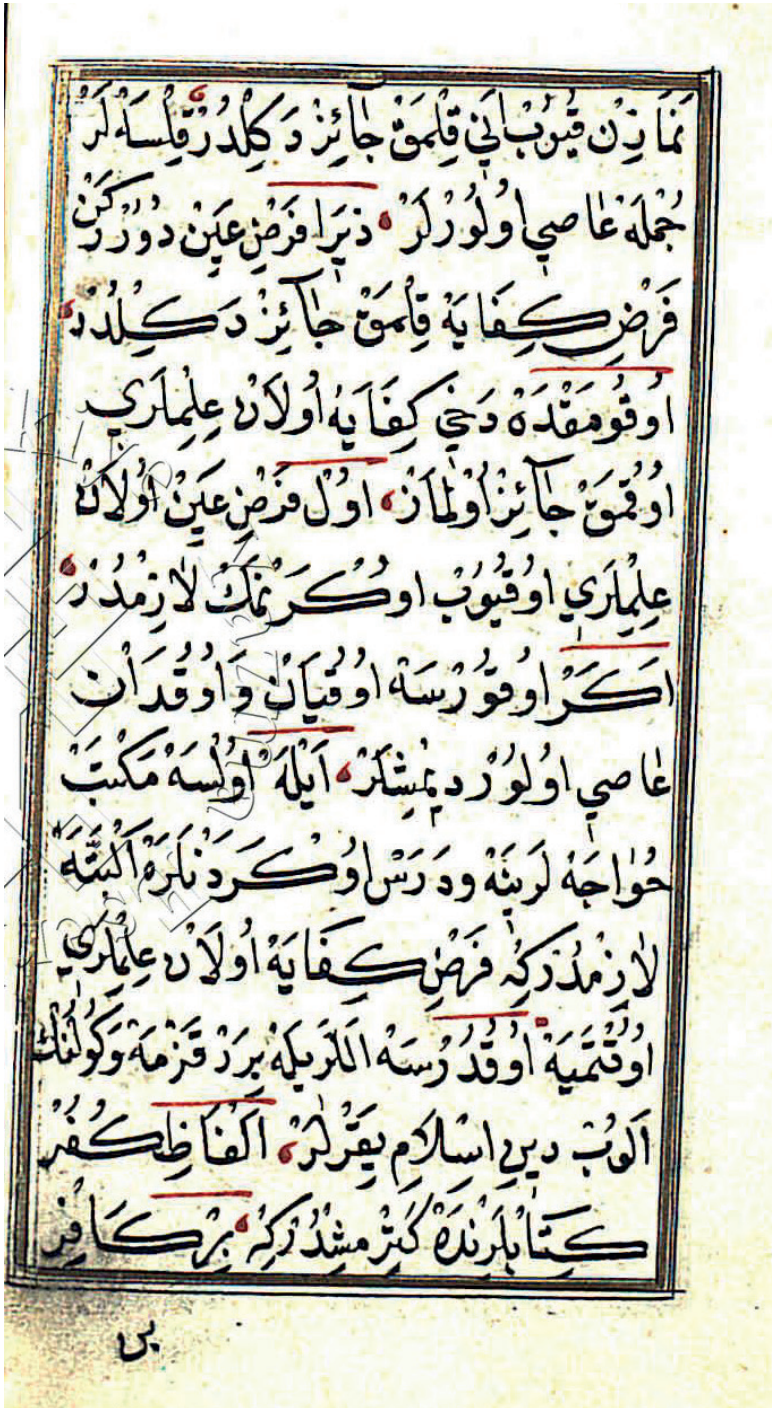 نَمَازِنْ قُيُوبْ اَنِي قِلْمَقْ جَائِزْ دَكِلْدُرْ قِلْسَهْ لَرْ
جُمْلَهْ عَاصِي اُولُورْلَرْ ذِيرَا فَرْضِ عَيْنْ دُورُرْكَنْ
فَرْضِ كِفَايَهْ قِلْمَقْ جَائِزْ دَكِلْدُرْ
اُوقُومَقْدَهْ دَخِي كِفَايَهْ اُولَانْ عِلِمْلَرِي
اُوقُمَقْ جَائِزْ اُولْمَازْ اَوَّلْ فَرْضِ عَيْنْ اُولَانْ
عِلِمْلَرِي اُوقُيُوبْ اوُكْرَنْمَكْ لَازِمْدُرْ
اَكَرْ اُوقُورْسَهْ اُوقُيَانْ وَاُوقُدَانْ
عَاصِي اُولُورْ دِيمِشْلَرْ اَيْلَهْ اُولْسَهْ مَكْتَبْ
خُوَاجَهْ لَرِينَهْ وِدَرَسْ اوُكْرَدَنْلَرَهْ اَلْبَتَّهْ
لَازِمْدُرْكِهْ فَرْضِ كِفَايَهْ اُولَانْ عِلِمْلَرِي
اُوقُتْمَيَهْ اُوقُدُرْسَهْ اَللَّرِيلَهْ بِرَرْ قَزْمَهْ وَكُولُنْكْ
اَلُوبْ دِينِ اِسْلَامِ يِقَرْلَرْ اَلْفَاظِ كُفُرْ
كِتَابْلَرِنْدَهْ كَتُرْمِشْدُرْكِهْ بِرْ كَافِرْ
بر